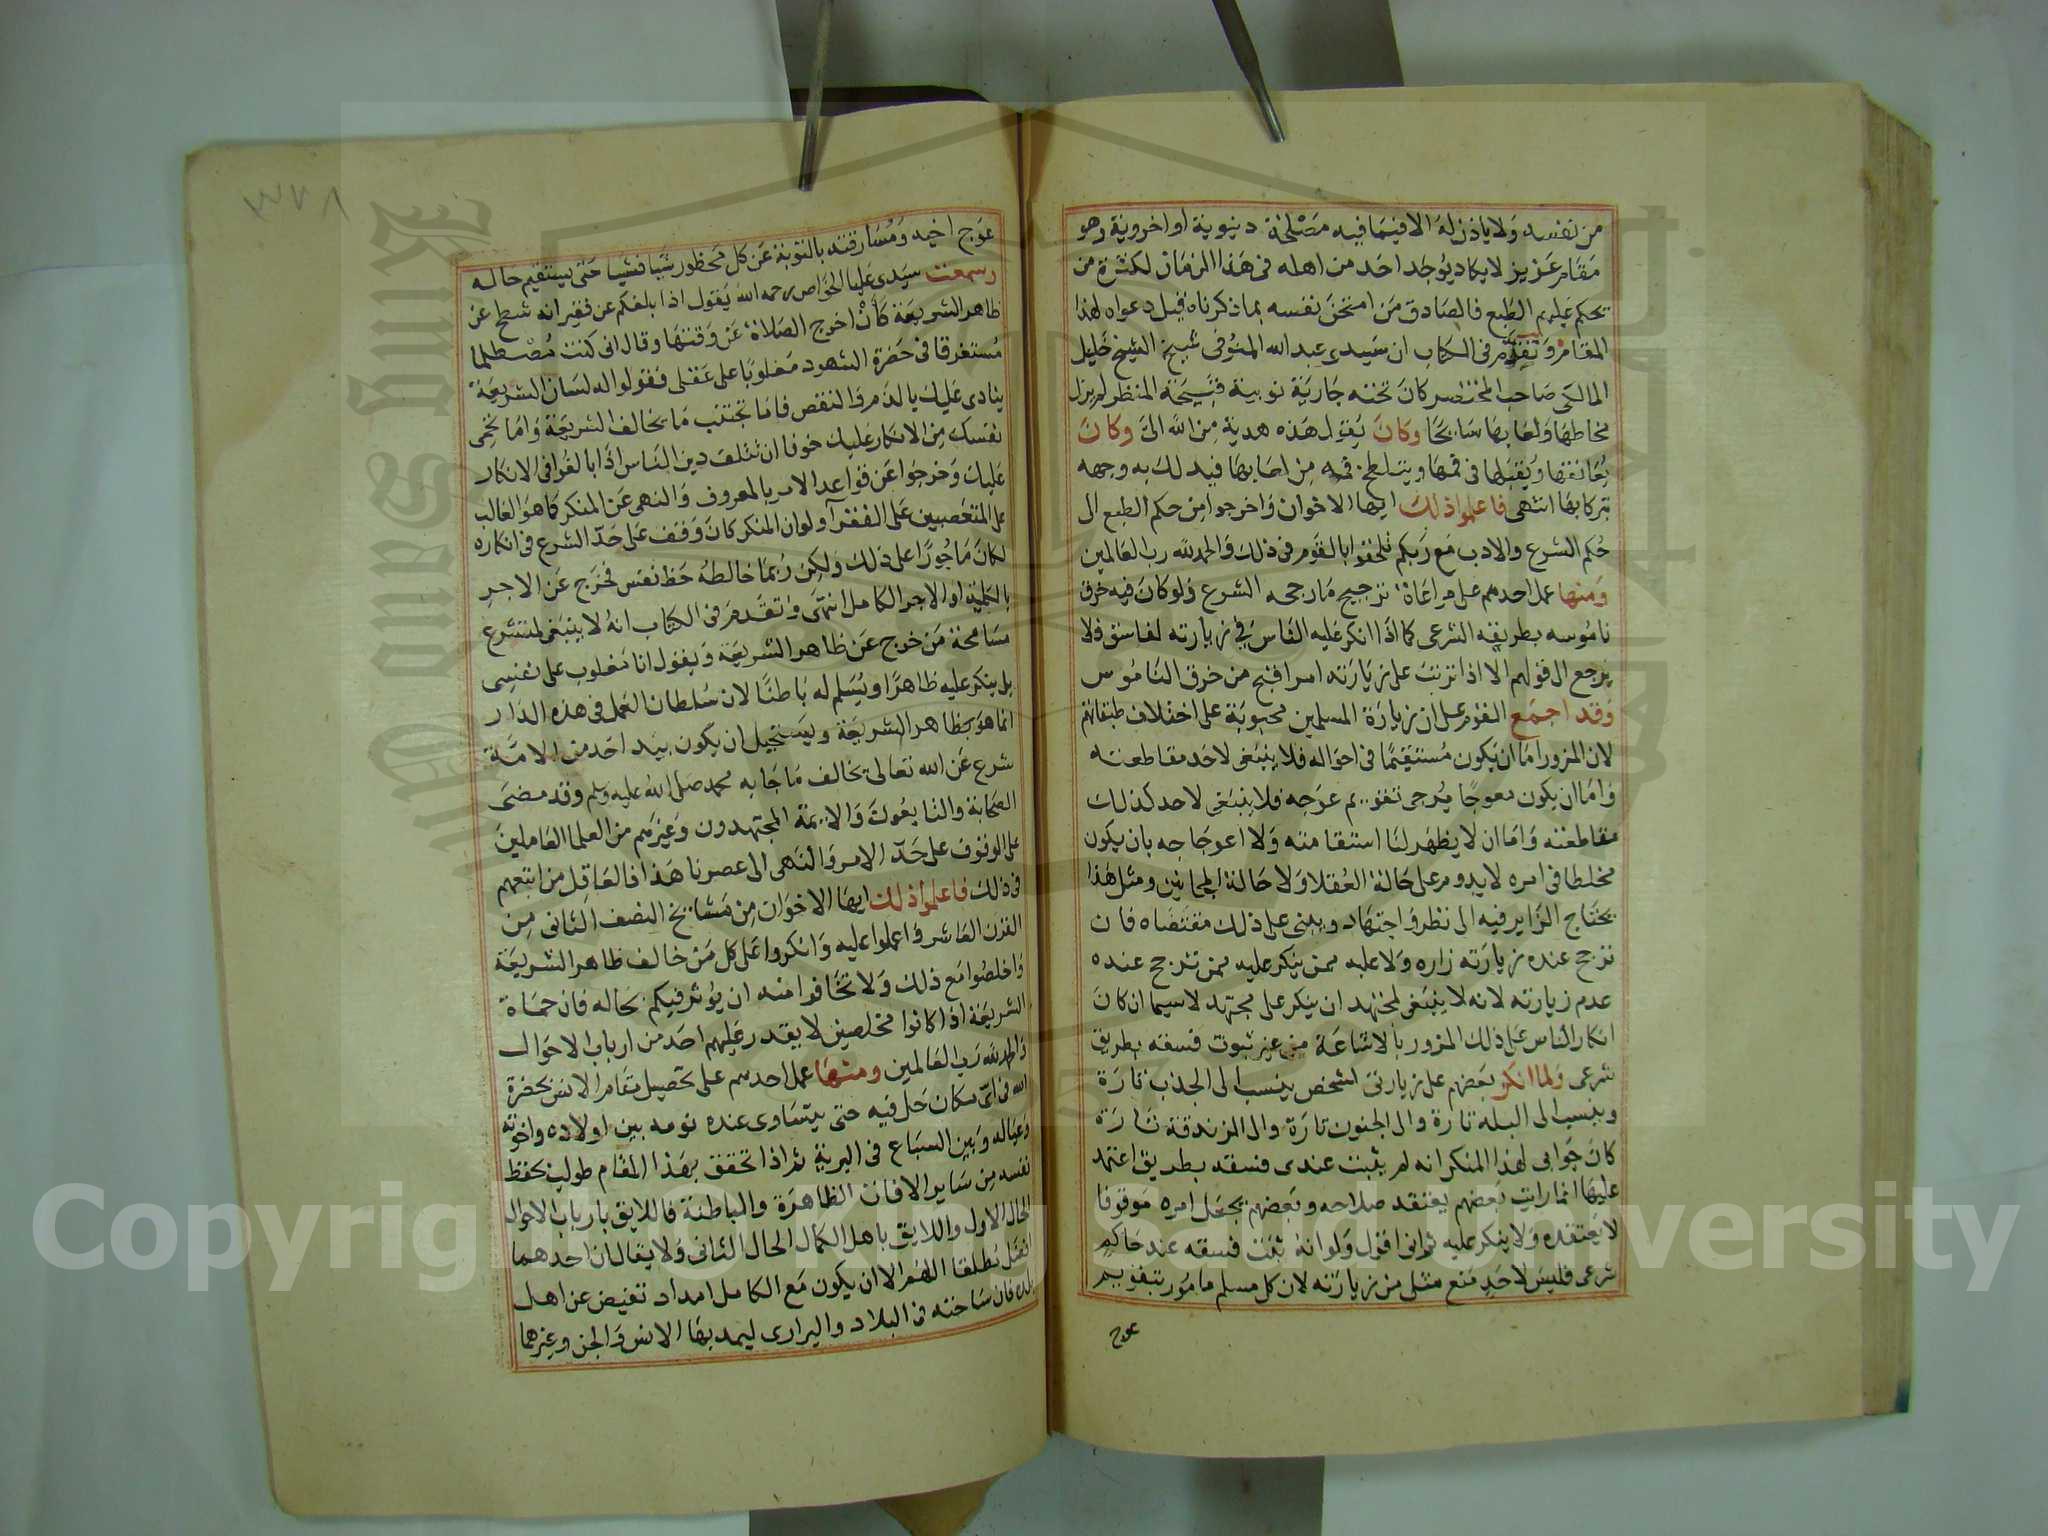 من نفسه ولا ياذن له الا فيما فيه مصلحة دنيوية او اخروية وهو
مقام عزيز لا يكاد يوجد احد من اهله فى هذا الزمان لكثرة من
يحكم عليهم الطبع فالصادق من امتحن نفسه بما ذكرناه قبل دعواه لهذا
المقام وتقدم فى الكتاب ان سيدى عبد الله المنوفى شيخ الشيخ خليل
المالكى صاحب المختصر كان تحته جارية نوبية قبيحة المنظر لم يزل
مخاطها ولعابها سايحا وكان يقول هذه هدية من الله الى وكان
يعانقها ويقبلها فى فمها ويتلطخ فمه من لعابها فيدلك به وجهه
تبركا بها انتهى فاعلموا ذلك ايها الاخوان واخرجوا من حكم الطبع الى
حكم الشرع والادب مع ربكم تلحقوا بالقوم فى ذلك والحمد لله رب العالمين
ومنها عمل احدهم على مراعاة ترجيح ما رجحه الشرع ولو كان فيه خرق
ناموسه بطريقه الشرعى كما اذا انكر عليه الناس فى زيارته لفاسق فلا
يرجع الى قولهم الا اذا ترتب على زيارته امر اقبح من خرق الناموس
وقد اجمع القوم على ان زيارة المسلمين محبوبة على اختلاف طبقاتهم
لان المزور اما ان يكون مستقيما فى احواله فلا ينبغى لاحد مقاطعته
واما ان يكون معوجا يرجى تقويم عوجه فلا ينبغى لاحد كذلك
مقاطعته واما ان لا يظهر لنا استقامته ولا اعوجاجه بان يكون
مخلطا فى امره لا يدوم على حالة العقلا ولا حالة المجانين ومثل هذا
يحتاج الزاير فيه الى نظر واجتهاد ويبنى على ذلك مقتضاه فان
ترجح عنده زيارته زاره ولا عليه ممن ينكر عليه ممن ترجح عنده
عدم زيارته لانه لا ينبغى لمجتهد ان ينكر على مجتهد لا سيما ان كان
انكار الناس على ذلك المزور بالاشاعة من غير ثبوت فسقه بطريق
شرعى ولما انكر بعضهم على زيارتى لشخص ينسب الى الجذب تارة
وينسب الى البله تارة والى الجنون تارة والى الزندقة تارة
كان جوابى لهذا المنكر انه لم يثبت عندى فسقه بطريق اعتمد
عليها انما رايت بعضهم يعتقد صلاحه وبعضهم يجعل امره موقوفا
لا يعتقده ولا ينكر عليه ثم انى اقول ولو انه ثبت فسقه عند حاكم
شرعى فليس لاحد منع مثلى من زيارته لان كل مسلم مامور بتقويم
عوج
عوج اخيه ومسارقته بالتوبة عن كل محظور شيا فشيا حتى يستقيم حاله
وسمعت سيدى عليا الخواص رحمه الله يقول اذا بلغكم عن فقير انه شطح عن
ظاهر الشريعة كأن اخرج الصلاة عن وقتها وقال انى كنت مصطلما
مستغرقا فى حضرة الشهود مغلوبا على عقلى فقولوا له لسان الشريعة
ينادى عليك بالذم والنقص فاما تجتنب ما يخالف الشريعة واما تحمى
نفسك من الانكار عليك خوفا ان تتلف دين الناس اذا بالغوا فى الانكار
عليك وخرجوا عن قواعد الامر بالمعروف والنهى عن المنكر كما هو الغالب
على المتعصبين على الفقرآ ولو ان المنكر كان وقف على حد الشرع فى انكاره
لكان ماجورا على ذلك ولكن ربما خالطه حظ نفس فخرج عن الاجر
بالكلية او الاجر الكامل انتهى وتقدم فى الكتاب انه لا ينبغى لمتشرع
مسامحة من خرج عن ظاهر الشريعة ويقول انا مغلوب على نفسى
بل ينكر عليه ظاهرا ويسلم له باطنا لان سلطان العمل فى هذه الدار
انما هو بظاهر الشريعة ويستحيل ان يكون بيد احد من الامة
شرع عن الله تعالى يخالف ما جا به محمد صلى الله عليه وسلم وقد مضى
الصحابة والتابعون والايمة المجتهدون وغيرهم من العلما العاملين
على الوقوف على حد الامر والنهى الى عصرنا هذا فالعاقل من اتبعهم
فى ذلك فاعلموا ذلك ايها الاخوان من مشايخ النصف الثانى من
القرن العاشر واعملوا عليه وانكروا على كل من خالف ظاهر الشريعة
واخلصوا مع ذلك ولا تخافوا منه ان يوثر فيكم بحاله فان حماة
الشريعة اذا كانوا مخلصين لا يقدر عليهم احد من ارباب الاحوال
والحمد لله رب العالمين ومنها عمل احدهم على تحصيل مقام الانس بحضرة
الله فى اى مكان حل فيه حتى يتساوى عنده نومه بين اولاده واخوته
وعياله وبين السباع فى البرية ثم اذا تحقق بهذا المقام طولب بحفظ
نفسه من ساير الافات الظاهرة والباطنة فاللايق بارباب الاحوال
الحال الاول واللايق باهل الكمال الحال الثانى ولا يقال ان احدهما
افضل مطلقا اللهم الا ان يكون مع الكامل امداد تفيض عن اهل
بلده فان ساحته فى البلاد والبرارى ليمد بها الانس والجن وغيرهما
Copyright © King Saud University